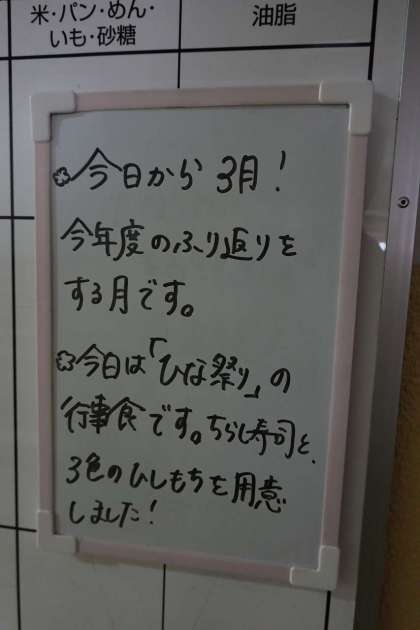 米・パン・めん・
いも・砂糖
油脂
今日から 3月!
今年度のふり返りを
する月です。
今日は「ひな祭り」の
行事食です。ちらし寿司と、
3色のひしもちを用意
しました!